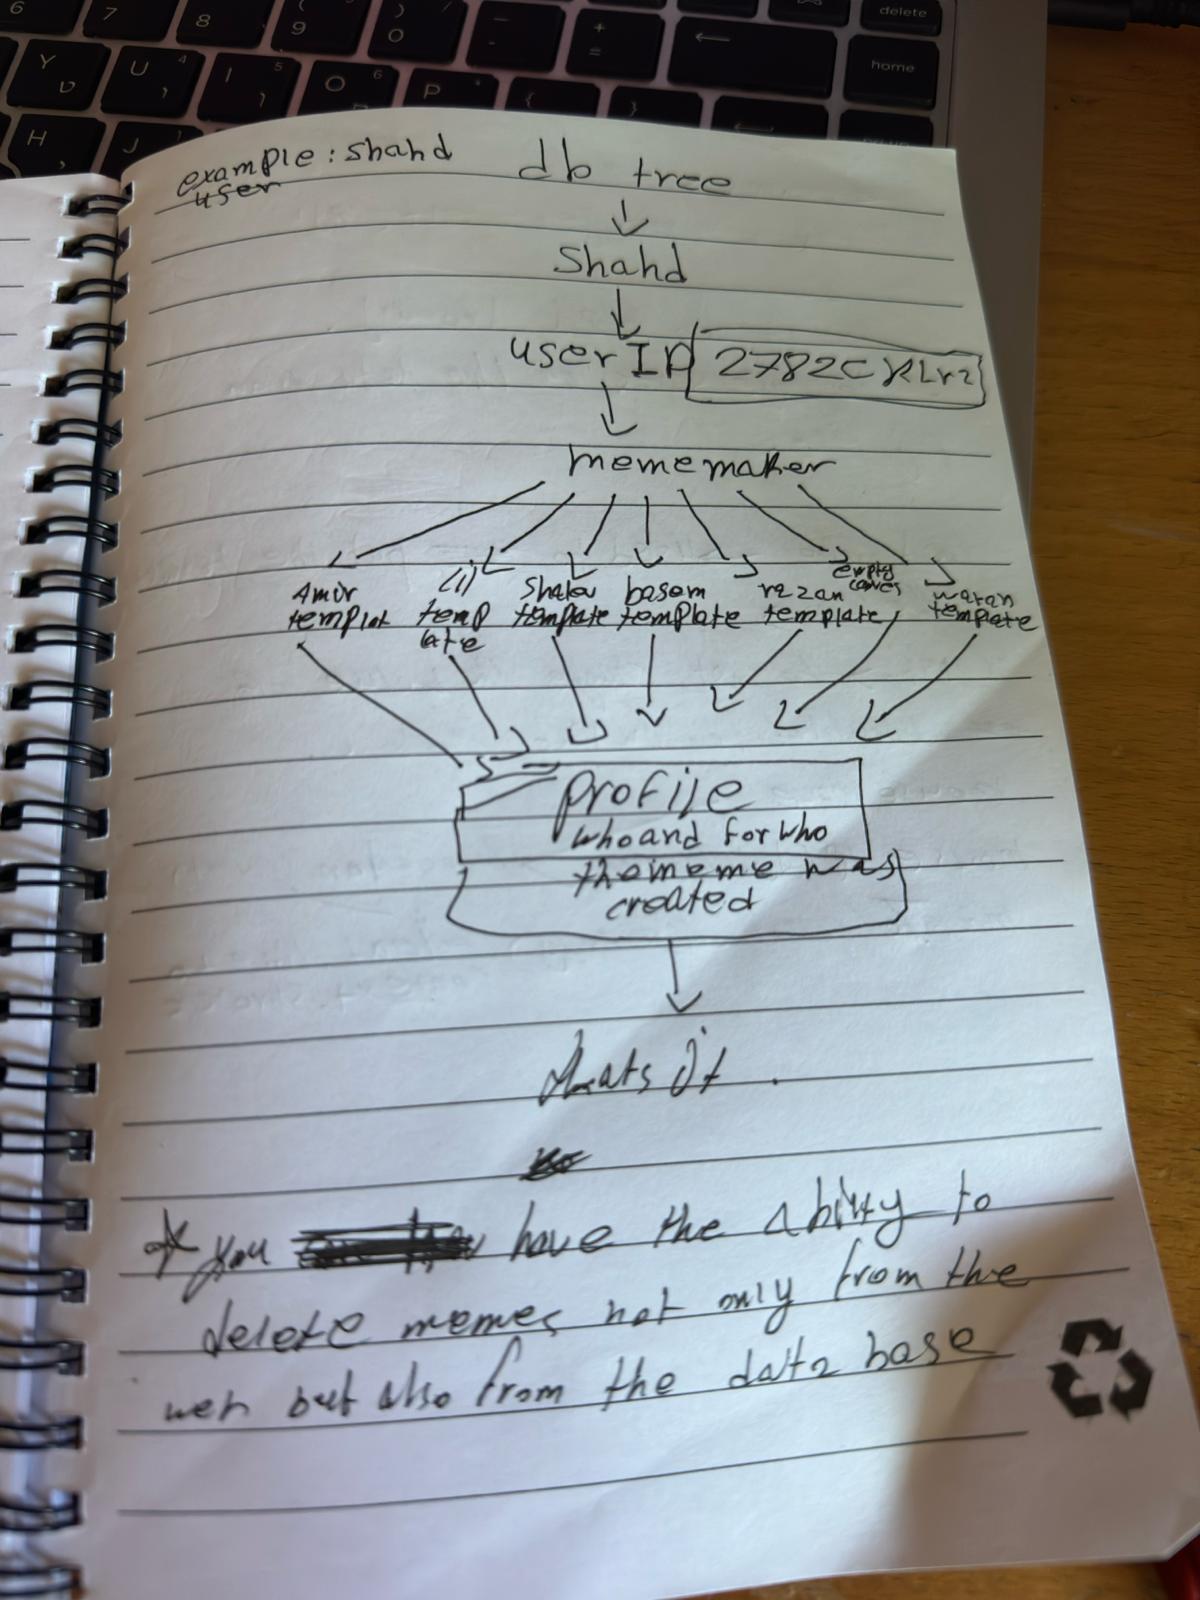 6 7 8 9 ) 0 - + = ← delete
Y U 4 I 5 O 6 P { } home
H J
example : shahd
user
db tree
Shahd
user ID 2782C
mememaker
Amir template
(1) template
template
basem template
razan template
empty
template
profile
who and for who
the meme was
created
thats it .
you have the ability to
delete memes not only from the
but also from the data base